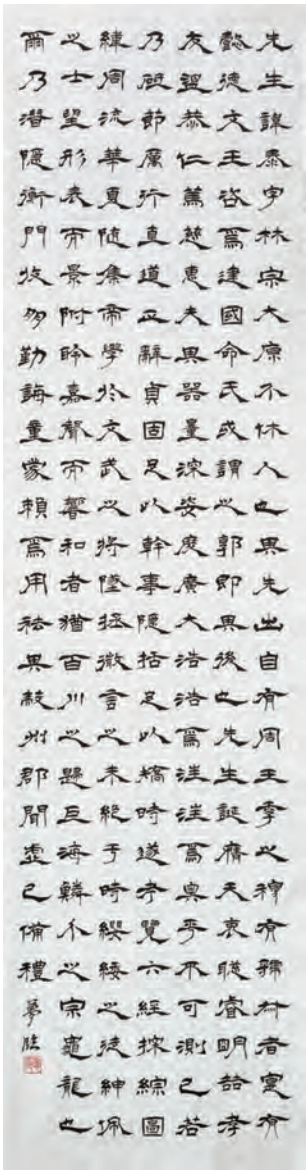 先生諱泰字林宗大原介休人也其先出自有周王季之穆有虢叔者寔有
懿德文王咨焉建國命氏或謂之郭即其後也先生誕膺天衷聡睿明喆孝
友溫恭仁篤慈惠夫其器量深姿度廣大浩浩焉汪汪焉奧乎不可測已若
乃砥節厲行直道正辭貞固足以幹事隱括足以矯時遂考覽六經探綜圖
緯周流華夏隨集帝學於文武之將墜拯微言之未絕于時纓緌之徒紳珮
之士望形表而景附聆嘉聲而響和者猶百川之歸巨海鱗介之宗龜龍也
爾乃潛隱衡門收朋勤誨童蒙賴焉用祛其蔽州郡聞虛己備禮